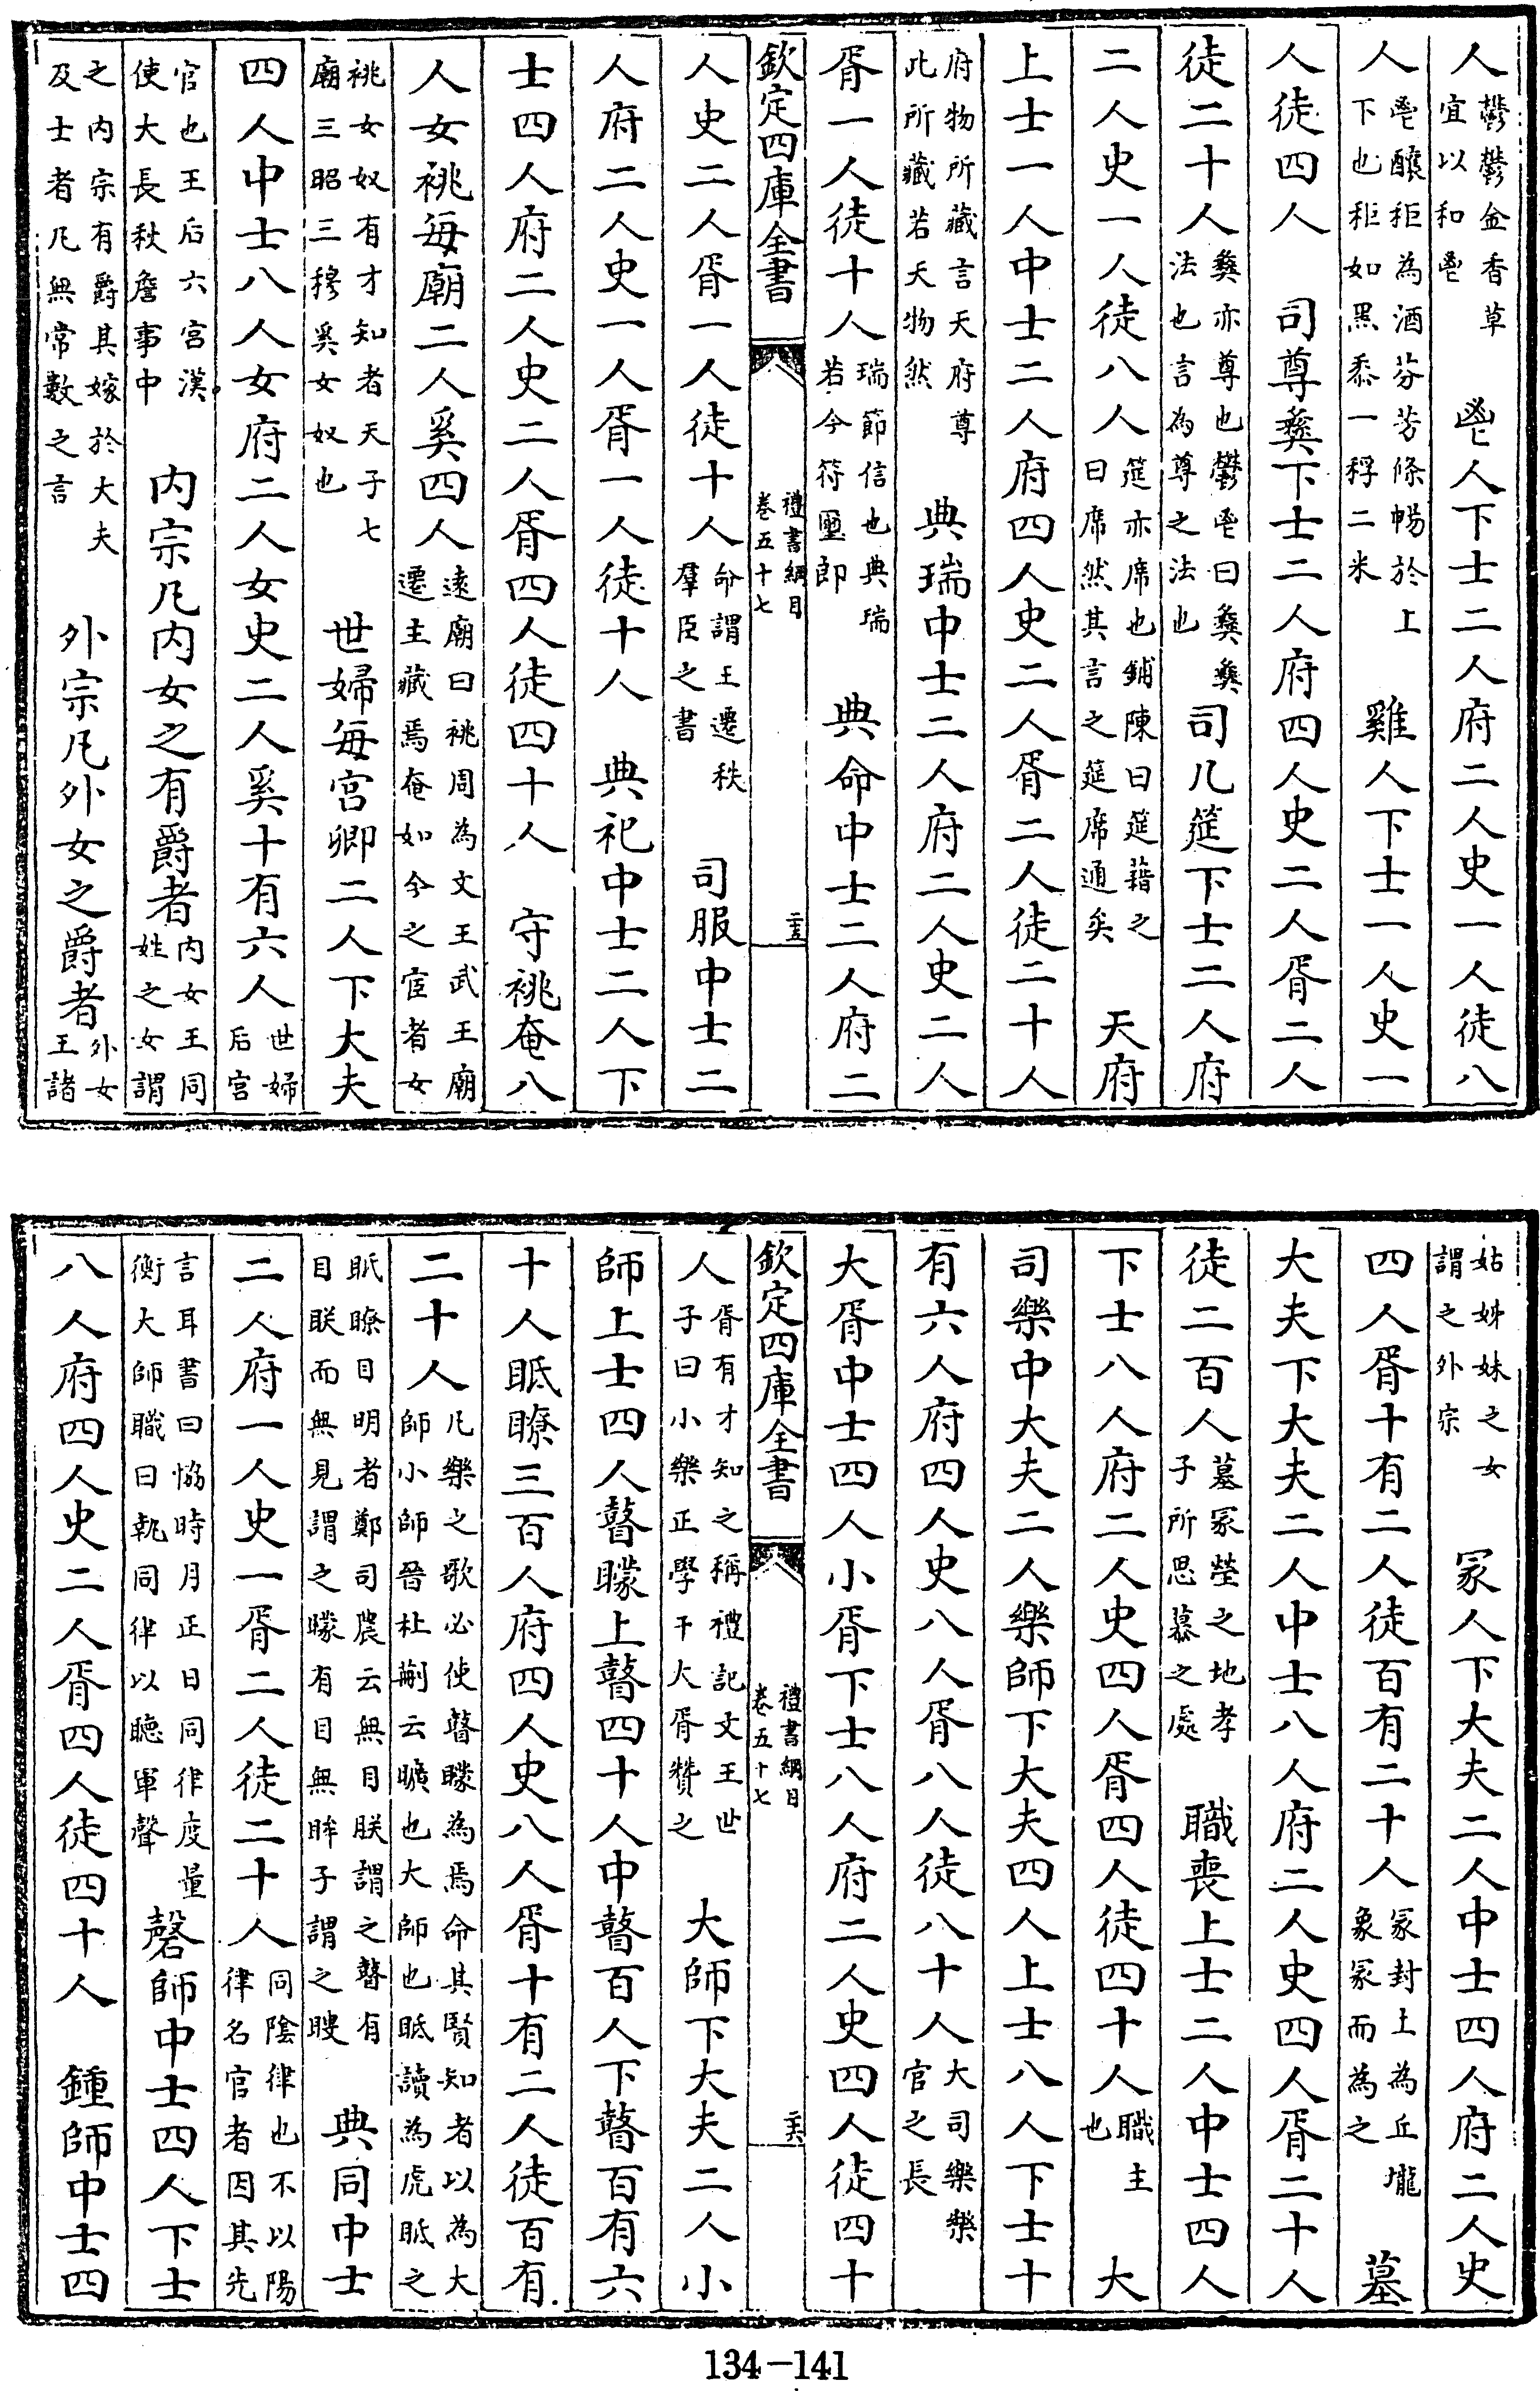 人鬱鬱金香草宜以和鬯　鬯人下士二人府二人史一人徒八
人鬯釀秬為酒芬芳條暢於上下也秬如黑黍一稃二米　雞人下士一人史一
人徒四人　司尊彝下士二人府四人史二人胥二人
徒二十人彝亦尊也鬱鬯曰彝彝法也言為尊之法也　司几筵下士二人府
二人史一人徒八人筵亦席也鋪陳曰筵藉之曰席然其言之筵席通矣　天府
上士一人中士二人府四人史二人胥二人徒二十人
府物所藏言天府尊此所藏若天物然　典瑞中士二人府二人史二人
胥一人徒十人瑞節信也典瑞若今符璽郎　典命中士二人府二
欽定四庫全書　禮書綱目卷五十七　二十五
人史二人胥一人徒十人命謂王遷秩羣臣之書　司服中士二
人府二人史一人胥一人徒十人　典祀中士二人下
士四人府二人史二人胥四人徒四十人　守祧奄八
人女祧每廟二人奚四人遠廟曰祧周為文王武王廟遷主藏焉奄如今之宦者女
祧女奴有才知者天子七廟三昭三穆奚女奴也　世婦每宮卿二人下大夫
四人中士八人女府二人女史二人奚十有六人世婦后宮
官也王后六宮漢使大長秋詹事中　內宗凡內女之有爵者內女王同姓之女謂
之內宗有爵其嫁於大夫及士者凡無常數之言　外宗凡外女之爵者外女王諸
姑姊妹之女謂之外宗　冢人下大夫二人中士四人府二人史
四人胥十有二人徒百有二十人冢封土為丘壠象冢而為之　墓
大夫下大夫二人中士八人府二人史四人胥二十人
徒二百人墓冢塋之地孝子所思慕之處　職喪上士二人中士四人
下士八人府二人史四人胥四人徒四十人職主也　大
司樂中大夫二人樂師下大夫四人上士八人下士十
有六人府四人史八人胥八人徒八十人大司樂樂官之長
大胥中士四人小胥下士八人府二人史四人徒四十
欽定四庫全書　禮書綱目卷五十七　二十六
人胥有才知之稱禮記文王世子曰小樂正學干大胥贊之　大師下大夫二人小
師上士四人瞽矇上瞽四十人中瞽百人下瞽百有六
十人眡瞭三百人府四人史八人胥十有二人徒百有
二十人凡樂之歌必使瞽矇為焉命其賢知者以為大師小師晉杜蒯云曠也大師也眡讀為虎眡之
眡瞭目明者鄭司農云無目眹謂之瞽有目眹而無見謂之矇有目無眸子謂之瞍　典同中士
二人府一人史一胥二人徒二十人同陰律也不以陽律名官者因其先
言耳書曰恊時月正日同律度量衡大師職曰執同律以聽軍聲　磬師中士四人下士
八人府四人史二人胥四人徒四十人　鍾師中士四
134-141